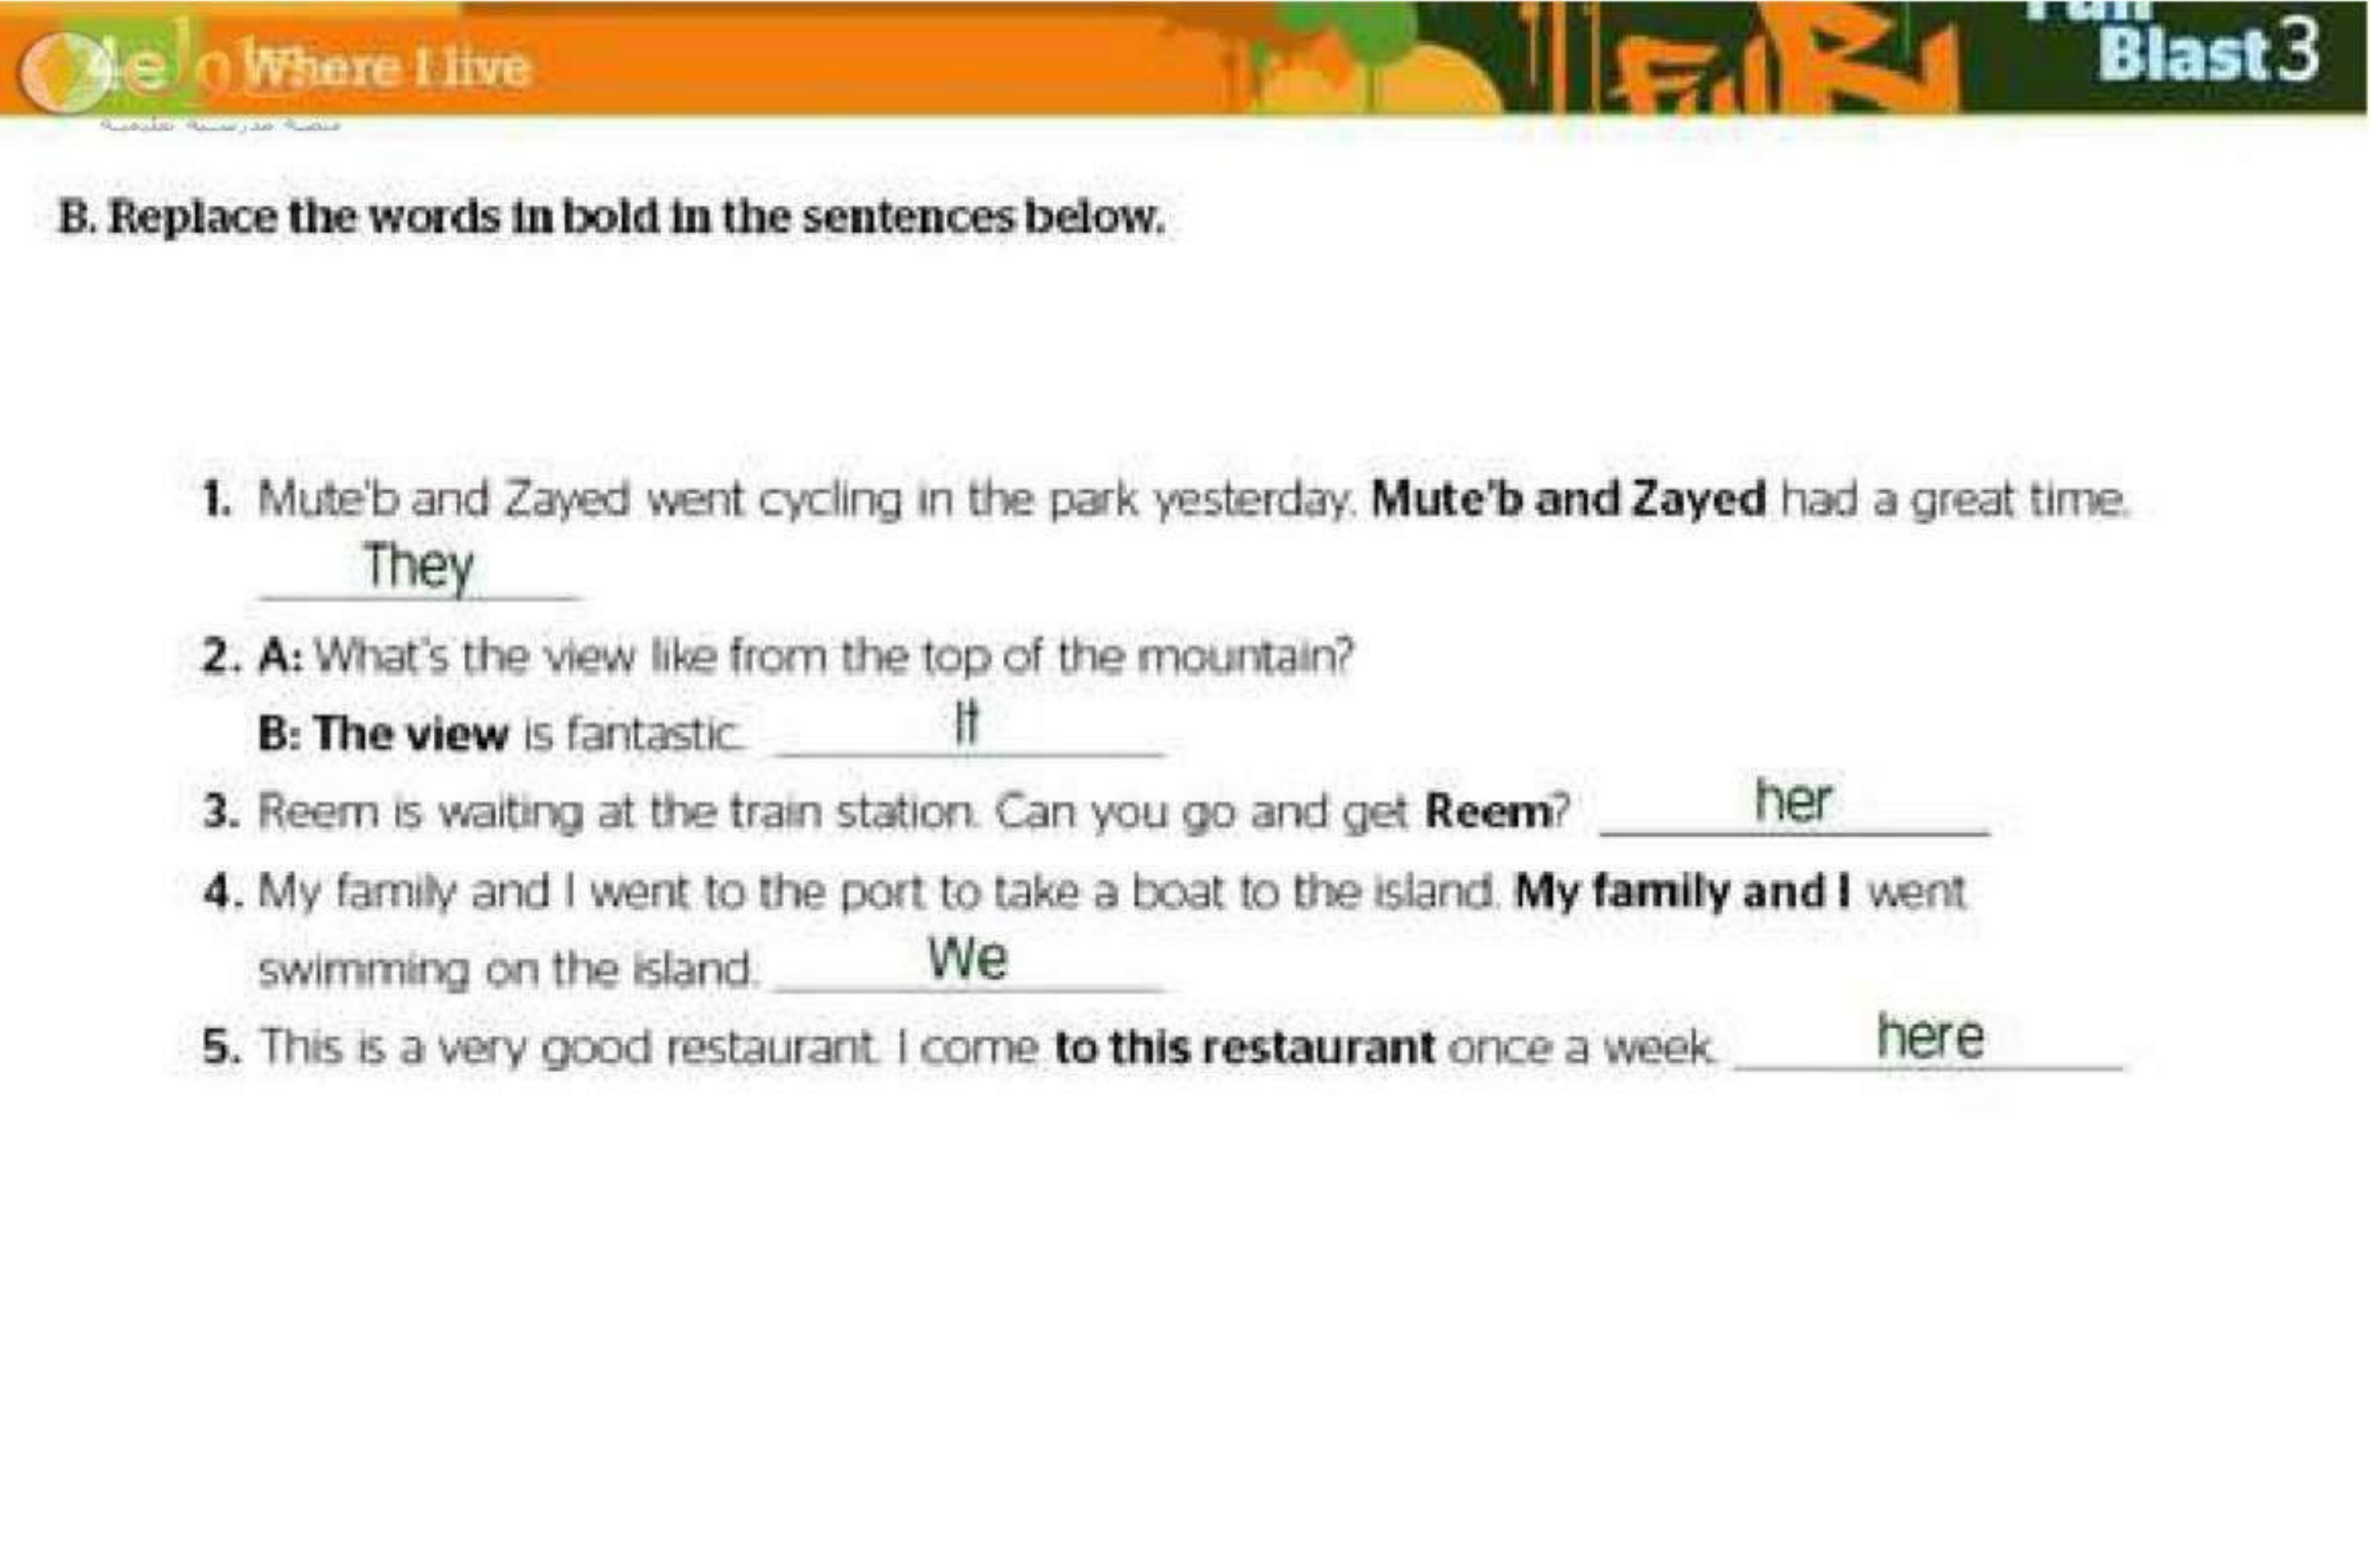 4e Where I live
Fun
Blast 3
منصة مدرستية تعليمية
B. Replace the words in bold in the sentences below.
1. Mute'b and Zayed went cycling in the park yesterday. Mute'b and Zayed had a great time.
They
2. A: What's the view like from the top of the mountain?
B: The view is fantastic. It
3. Reem is waiting at the train station. Can you go and get Reem? her
4. My family and I went to the port to take a boat to the island. My family and I went
swimming on the island. We
5. This is a very good restaurant. I come to this restaurant once a week. here